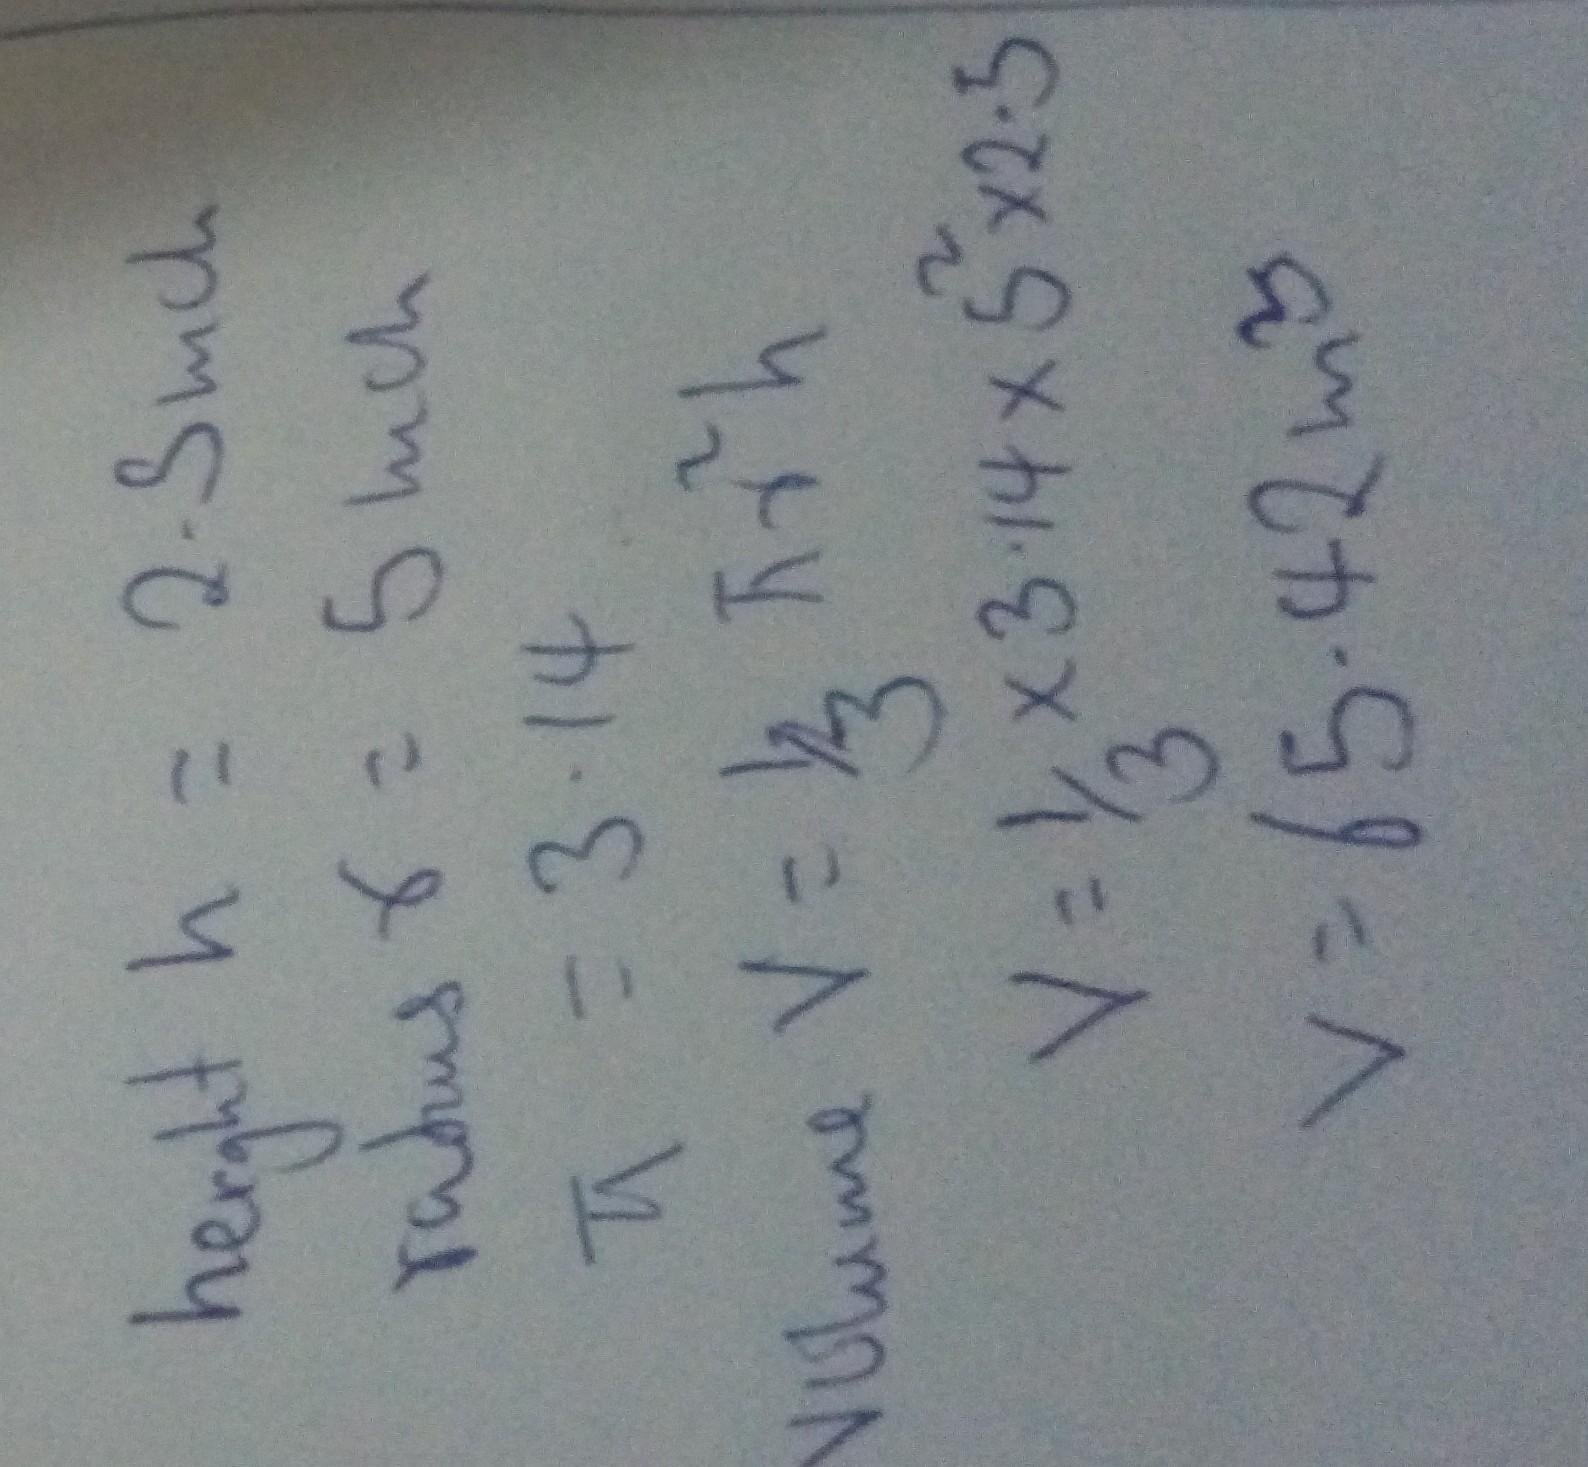 height h = 2.5 inch
radius r = 5 inch
π = 3.14
Volume V = 1/3 πr²h
V = 1/3 × 3.14 × 5² × 2.5
V = 65.42 in³